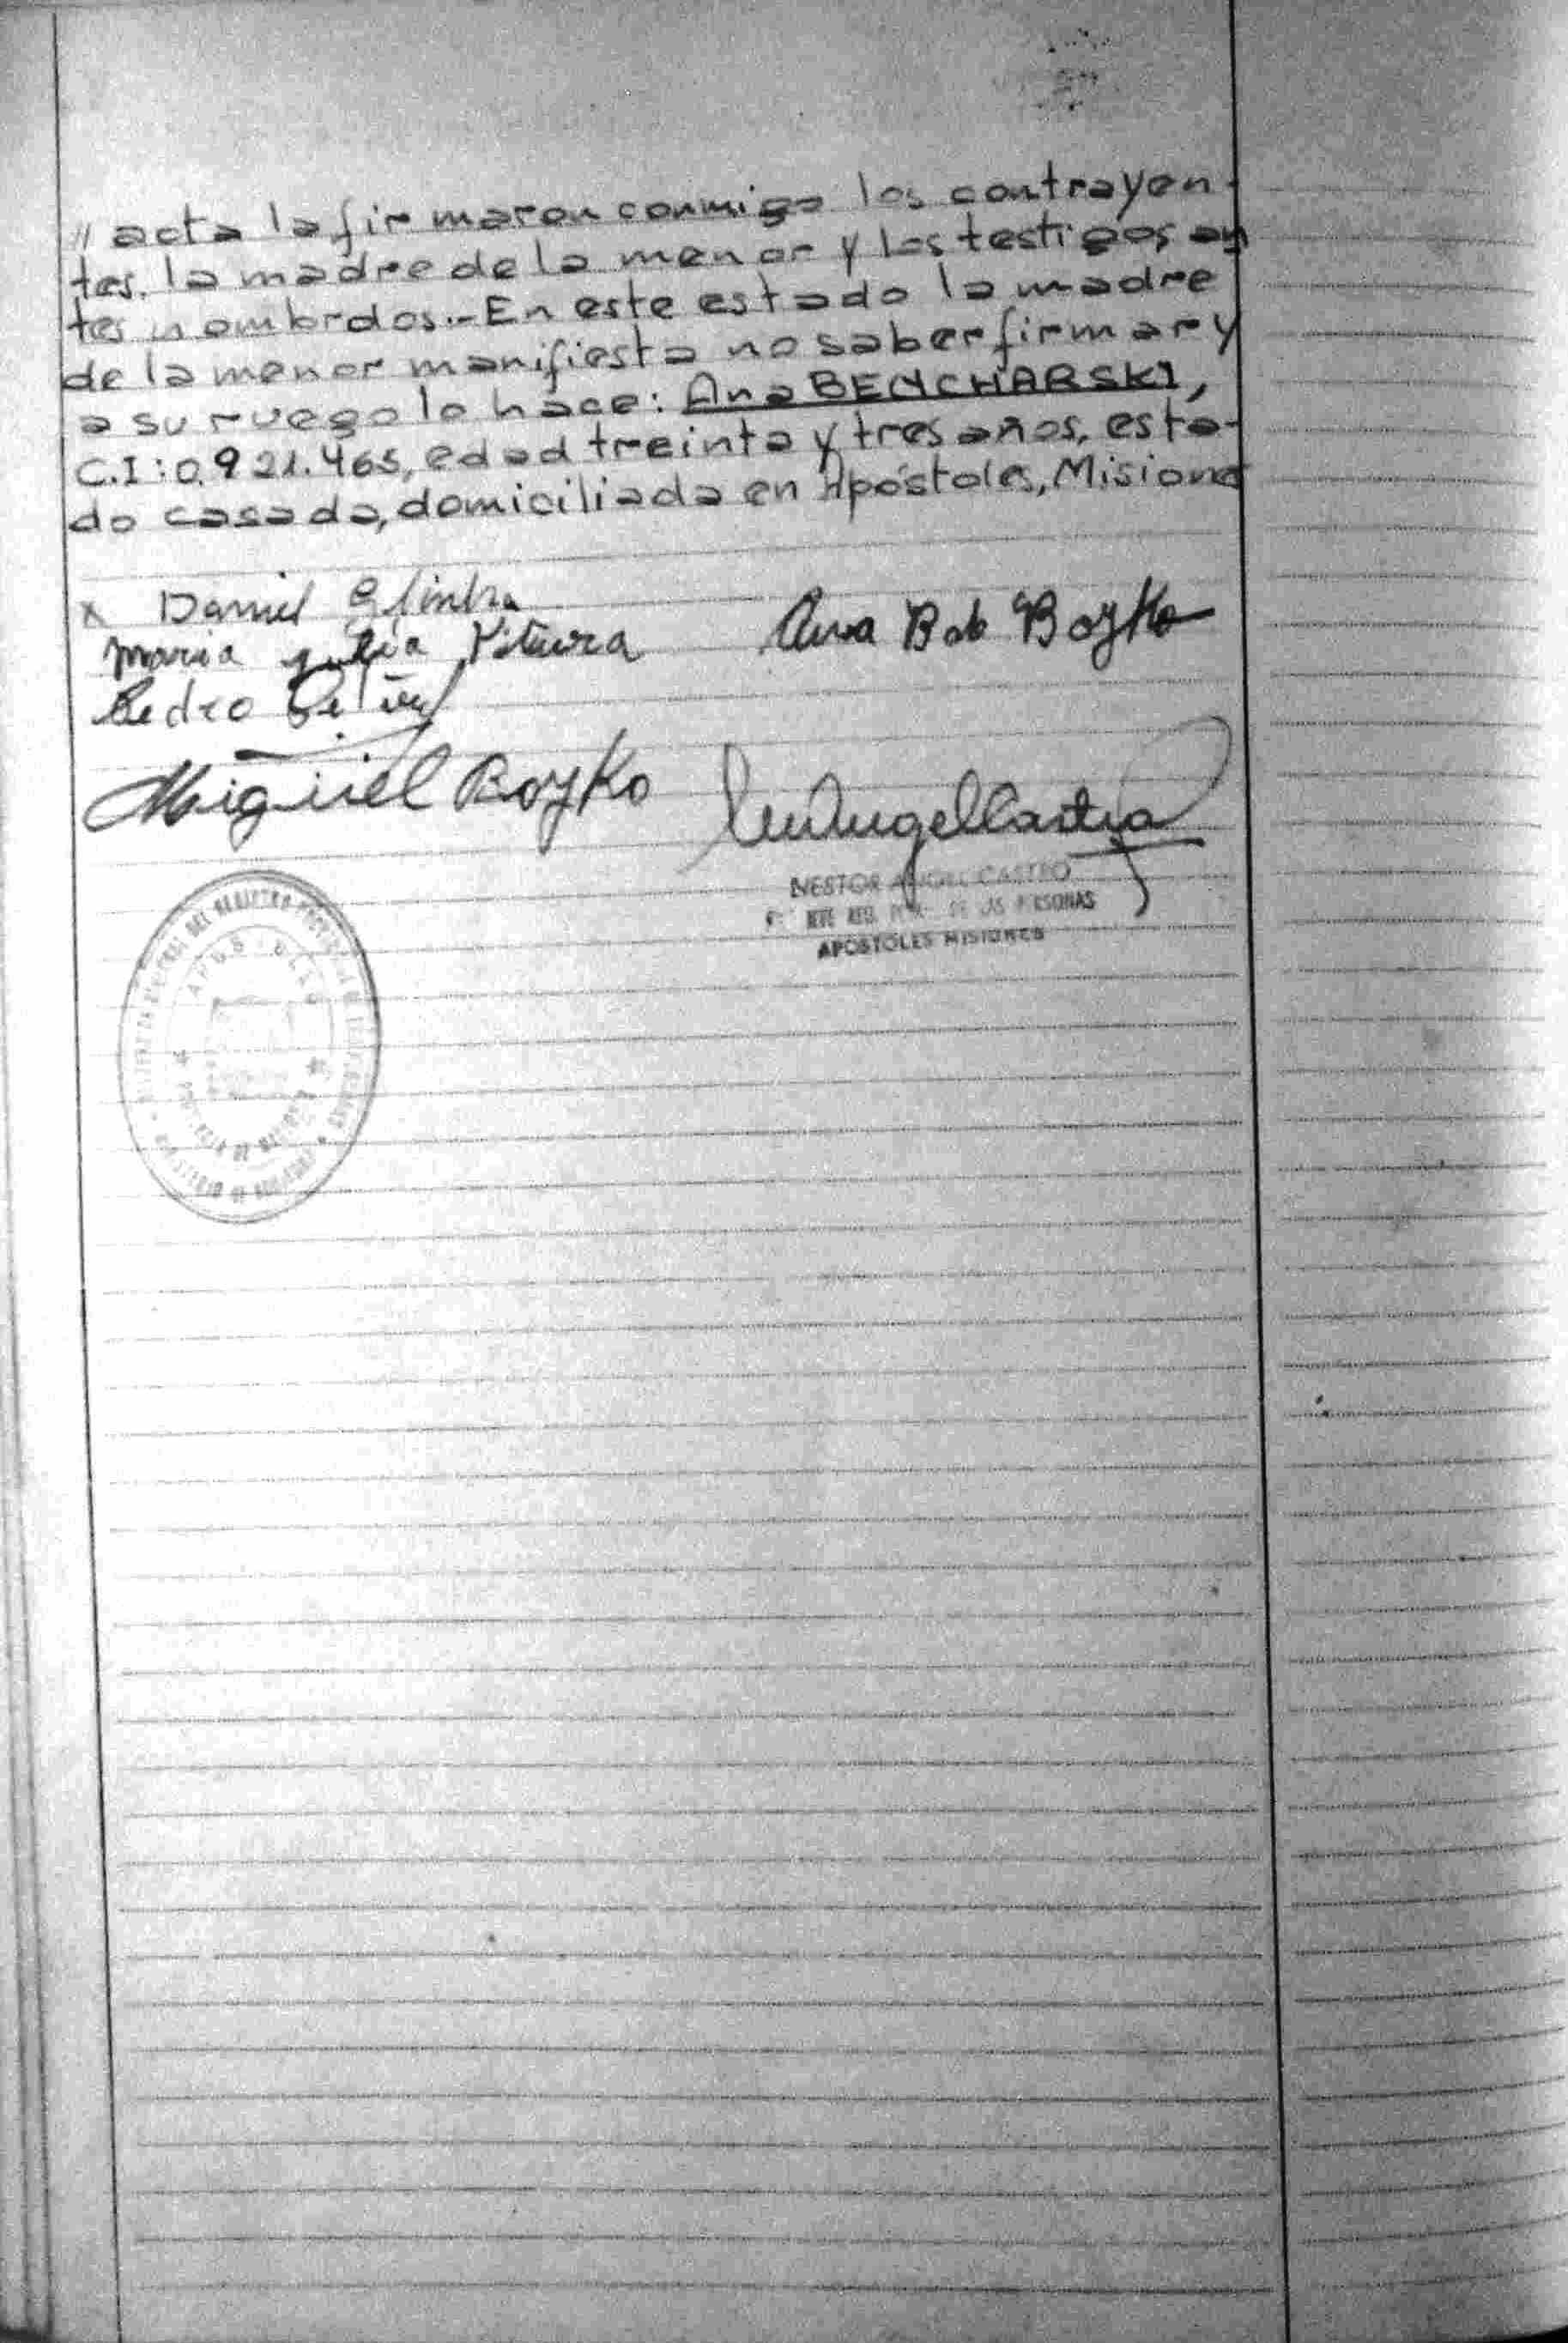 // acta la firmaron conmigo los contrayen-
tes, la madre de la menor y los testigos an
tes nombrdos.- En este estado la madre
de la menor manifiesta no saber firmar y
a su ruego lo hace: Ana BENCHARSKI,
C.I: 0.921.465, edad treinta y tres años, esta-
do casada, domiciliada en Apóstoles, Misiones
x Daniel
Maria Julia Ana Bob Boyko
Pedro
Miguel Boyko
NESTOR ANGEL CASTRO
DE LAS PERSONAS
APOSTOLES MISIONES
DEL REGISTRO
APOSTOLES